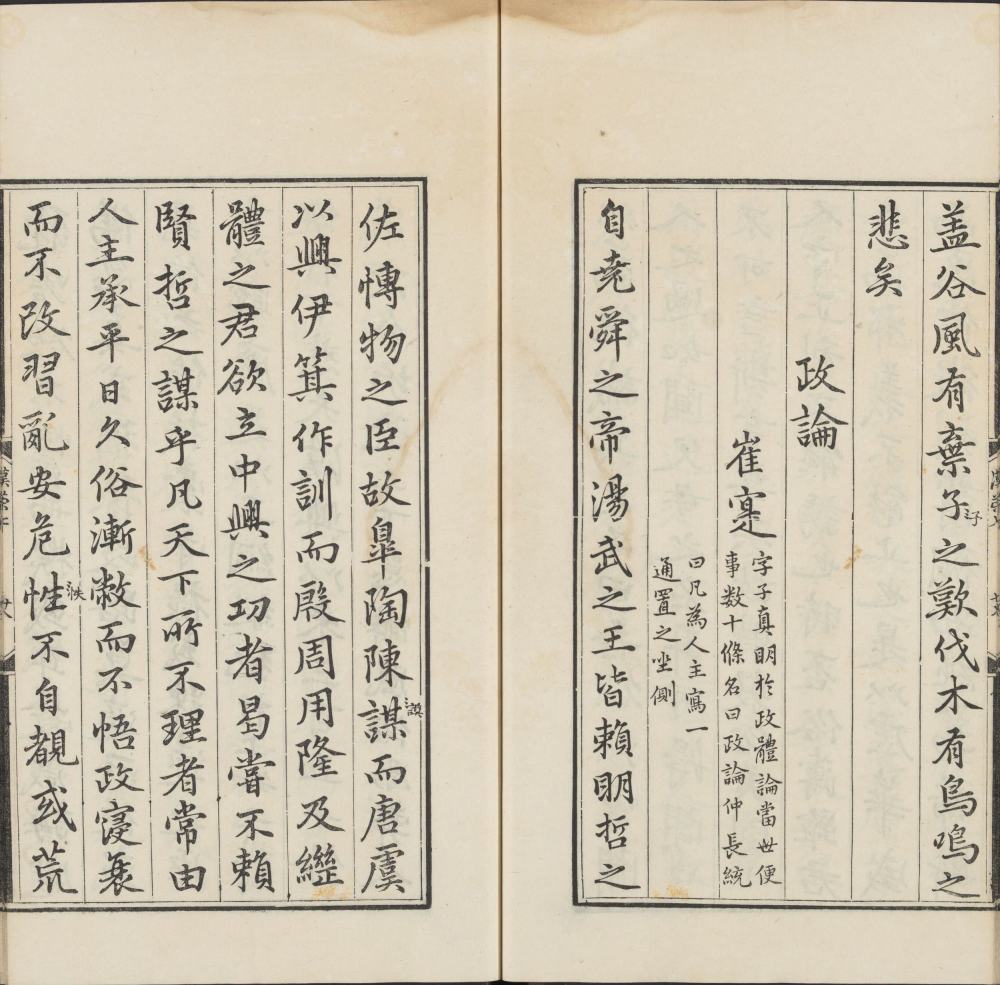 蓋谷風有棄子之歎伐木有鳥鳴之
悲矣
政論
崔寔
字子真明於政體論當世便
事数十條名曰政論仲長統
曰凡為人主寫一
通置之坐側
自堯舜之帝湯武之王皆賴明哲之
佐博物之臣故皐陶陳謀而唐虞
以興伊箕作訓而殷周用隆及繼
體之君欲立中興之功者曷嘗不賴
賢哲之謀乎凡天下所不理者常由
人主承平日久俗漸敝而不悟政寖衰
而不改習亂安危性不自覩或荒